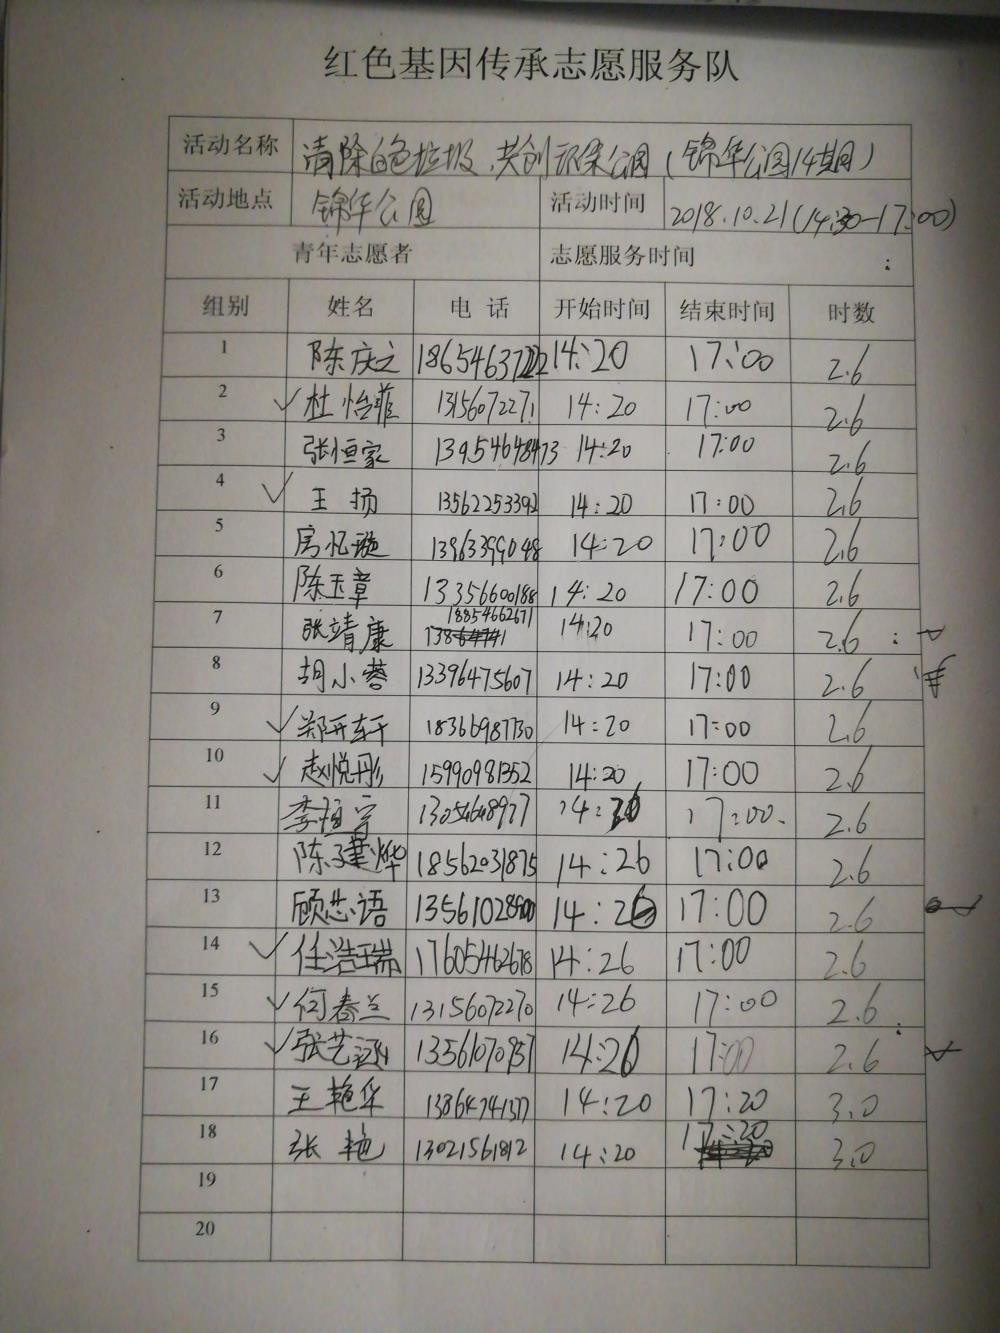 红色基因传承志愿服务队
活动名称 清除白色垃圾、共创环保公园(锦华公园14期)
活动地点 锦华公园 活动时间 2018.10.21(14:30-17:00)
青年志愿者 志愿服务时间
组别 姓名 电话 开始时间 结束时间 时数
1 陈庆之 14:20 17:00 2.6
2 杜怡菲 13156072271 14:20 17:00 2.6
3 张恒家 13954648473 14:20 17:00 2.6
4 王扬 13562253392 14:20 17:00 2.6
5 房忆璇 13963399048 14:20 17:00 2.6
6 陈玉章 13356600188 14:20 17:00 2.6
7 张靖康 18854662671 14:20 17:00 2.6
8 胡小蓉 13396475607 14:20 17:00 2.6
9 郑开轩 18366987730 14:20 17:00 2.6
10 赵悦彤 15990981352 14:20 17:00 2.6
11 李恒宇 17:00 2.6
12 陈子建烨 18562031875 14:26 17:00 2.6
13 顾芯语 17:00 2.6
14 任浩瑞 17605462678 14:26 17:00 2.6
15 何春兰 13156072270 14:26 17:00 2.6
16 张艺涵 13561070937 17:00 2.6
17 王艳华 13864741377 14:20 17:20 3.0
18 张艳 13021561812 14:20 17:20 3.0
19
20